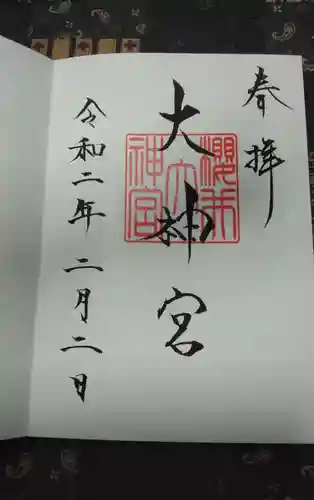 奉拝
大神宮
櫻木
大
神宮
令和二年 二月二日